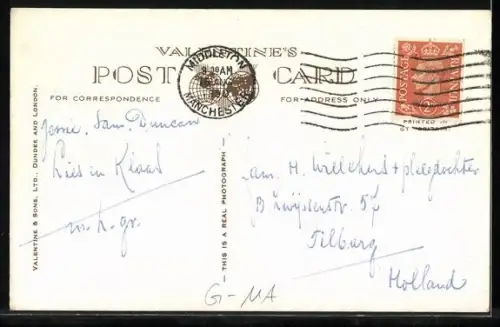 VALENTINE'S
POST CARD
MIDDLETON
MANCHESTER
9.30 AM
FOR CORRESPONDENCE
FOR ADDRESS ONLY
POSTAGE
REVENUE
PRINTED IN
VALENTINE & SONS, LTD., DUNDEE AND LONDON.
THIS IS A REAL PHOTOGRAPH
Jessie. Sam. Duncan
Lies en Klaas
m. h. gr.
am. H. Willekens + pleegdochter
57
Tilburg
Holland
G-MA